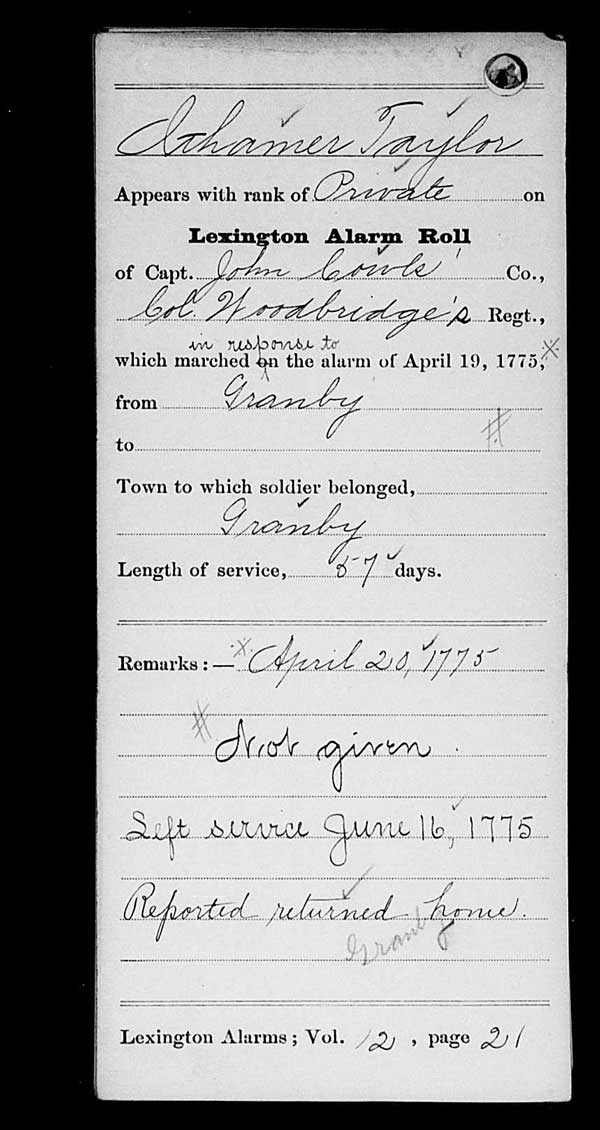 Ithamer Taylor
Appears with rank of Private on
Lexington Alarm Roll
of Capt. John Cowls' Co.,
Col. Woodbridge's Regt.,
in response to
which marched on the alarm of April 19, 1775, X
from Granby
to #
Town to which soldier belonged,
Granby
Length of service, 57 days.
Remarks: — X April 20, 1775
# Not given.
Left service June 16, 1775
Reported returned home.
Granby
Lexington Alarms; Vol. 12, page 21